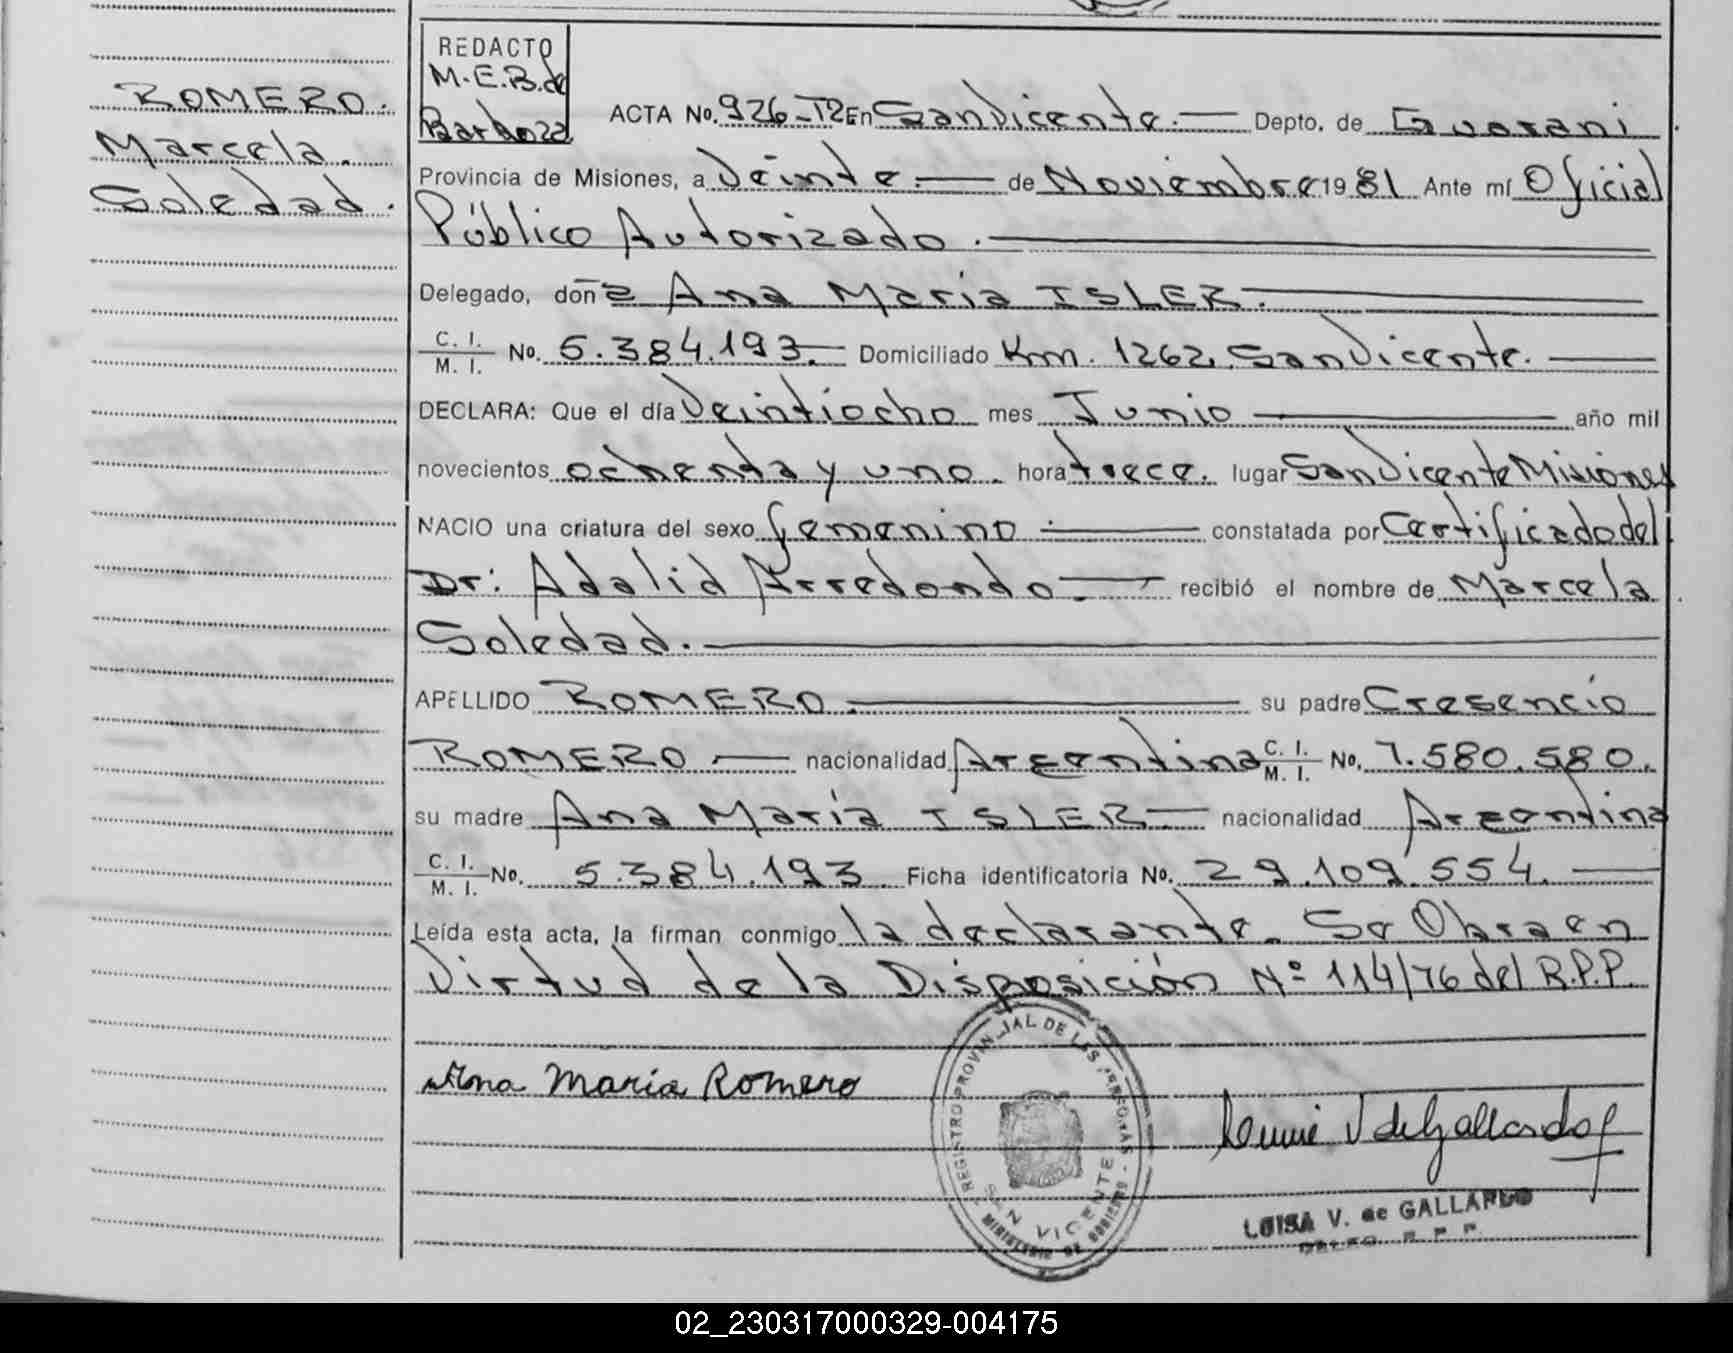 ROMERO.
Marcela.
Soledad.
REDACTO
M.E.B.de
Barboza
ACTA No. 926-T2 En San Vicente.— Depto. de Guarani
Provincia de Misiones, a Veinte.— de Noviembre 1981 Ante mí Oficial
Público Autorizado.—
Delegado, don a Ana Maria ISLER.
C. I.
M. I. No. 5.384.193.— Domiciliado Km. 1262. San Vicente.—
DECLARA: Que el día Veintiocho mes Junio — año mil
novecientos ochenta y uno. hora trece. lugar San Vicente Misiones
NACIO una criatura del sexo femenino.— constatada por Certificado del
Dr: Adalid Arredondo.— recibió el nombre de Marcela
Soledad.—
APELLIDO ROMERO.— su padre Cresencio
ROMERO — nacionalidad Argentina C. I. M. I. No. 7.580.580.
su madre Ana María ISLER — nacionalidad Argentina
C. I.
M. I. No. 5.384.193 Ficha identificatoria No. 29.109.554.—
Leída esta acta, la firman conmigo la declarante. Se Obra en
Virtud de la Disposición Nº 114/76 del R.P.P.
Ana Maria Romero
REGISTRO PROVINCIAL DE LAS PERSONAS
SAN VICENTE
MINISTERIO DE GOBIERNO
V de Gallardo
LUISA V. de GALLARDO
02_230317000329-004175